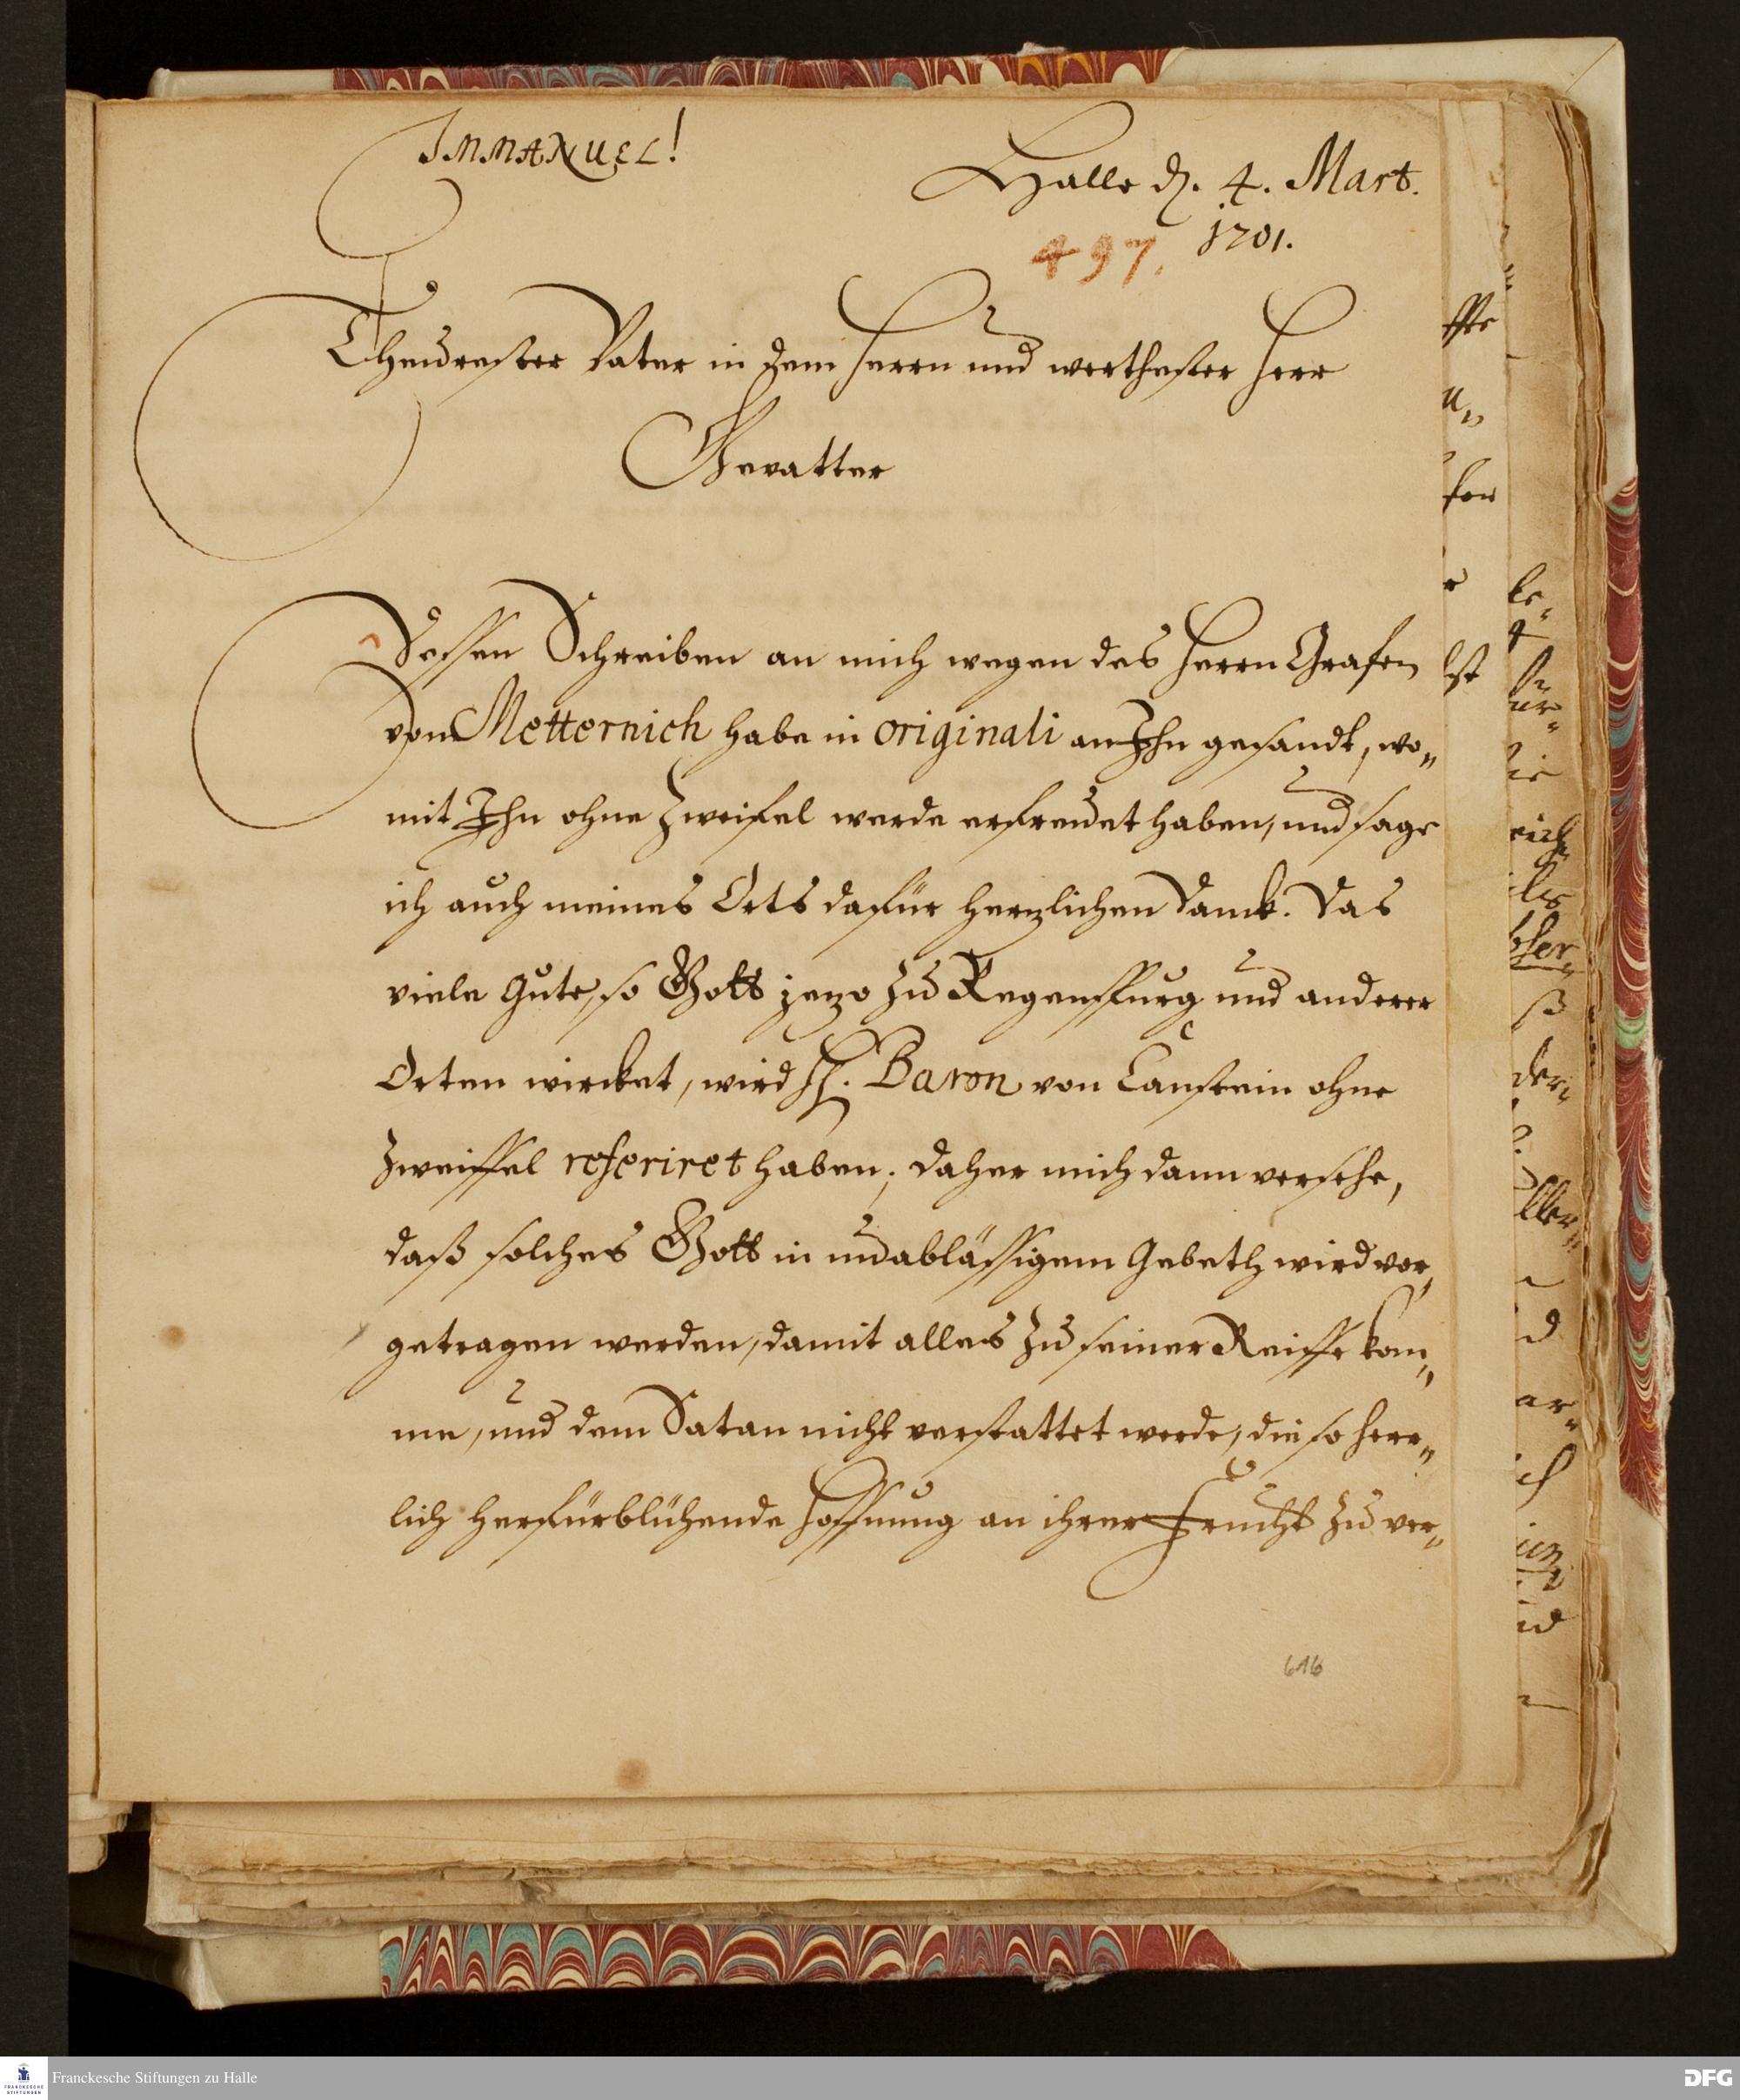 IMMANUEL!
Halle d. 4. Mart.
1701.
497.
Theurester Vater in dem Herrn und werthester Herr
Gevatter
Dessen Schreiben an mich wegen des Herrn Grafen
von Metternich habe in originali an Ihn gesandt, wo„
mit Ihn ohne Zweifel werde erfreuet haben, und sage
ich auch meines Orts dafür herzlichen Danck. Das
viele Gute, so Gott jezo zu Regenspurg und anderer
Orten wircket, wird H. Baron von Canstein ohne
Zweiffel referiret haben; daher mich dann versehe,
daß solches Gott in unabläßigem Gebeth wird vor„
getragen werden, damit alles zu seiner Reiffe kom„
me, und dem Satan nicht verstattet werde, die so herr„
lich herfürblühende Hoffnung an ihrer Frucht zu ver„
616
Franckesche Stiftungen zu Halle
FRANCKESCHE
STIFTUNGEN
DFG